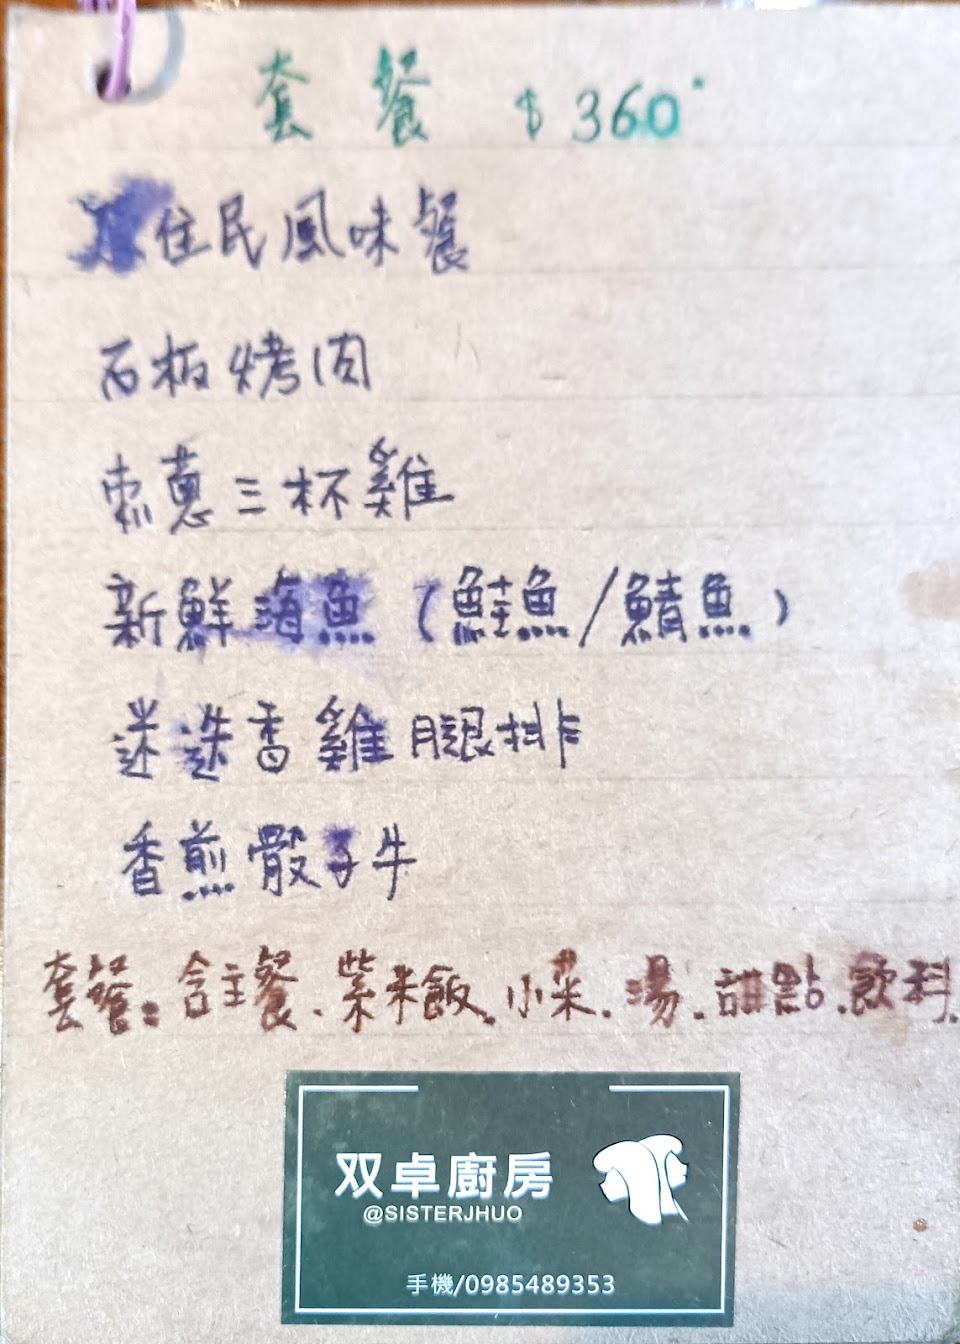 套餐 $360
住民風味餐
石板烤肉
刺蔥三杯雞
新鮮海魚(鮭魚/鯖魚)
迷迭香雞腿排
香煎骰子牛
套餐:含主餐、紫米飯.小菜.湯.甜點.飲料.
双卓廚房
@SISTERJHUO
手機/0985489353